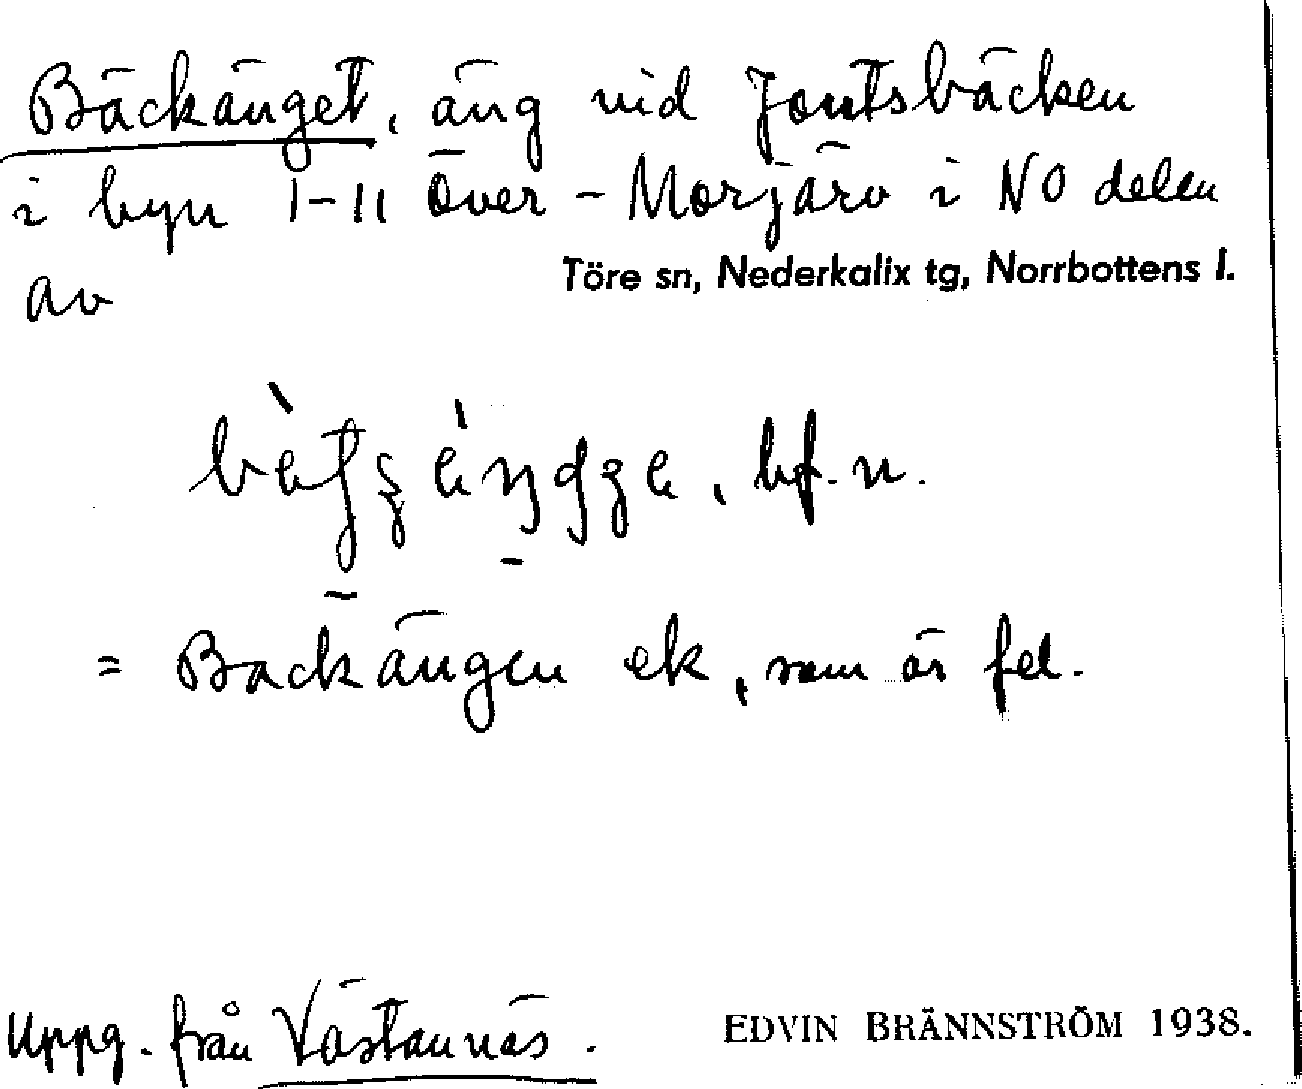 Bäckänget, äng vid Jontsbäcken
i byn 1-11 Över-Morjärv i NO delen
av Töre sn, Nederkalix tg, Norrbottens l.
bf. n.
= Backängen ek, som är fel.
Uppg. från Västannäs. EDVIN BRÄNNSTRÖM 1938.